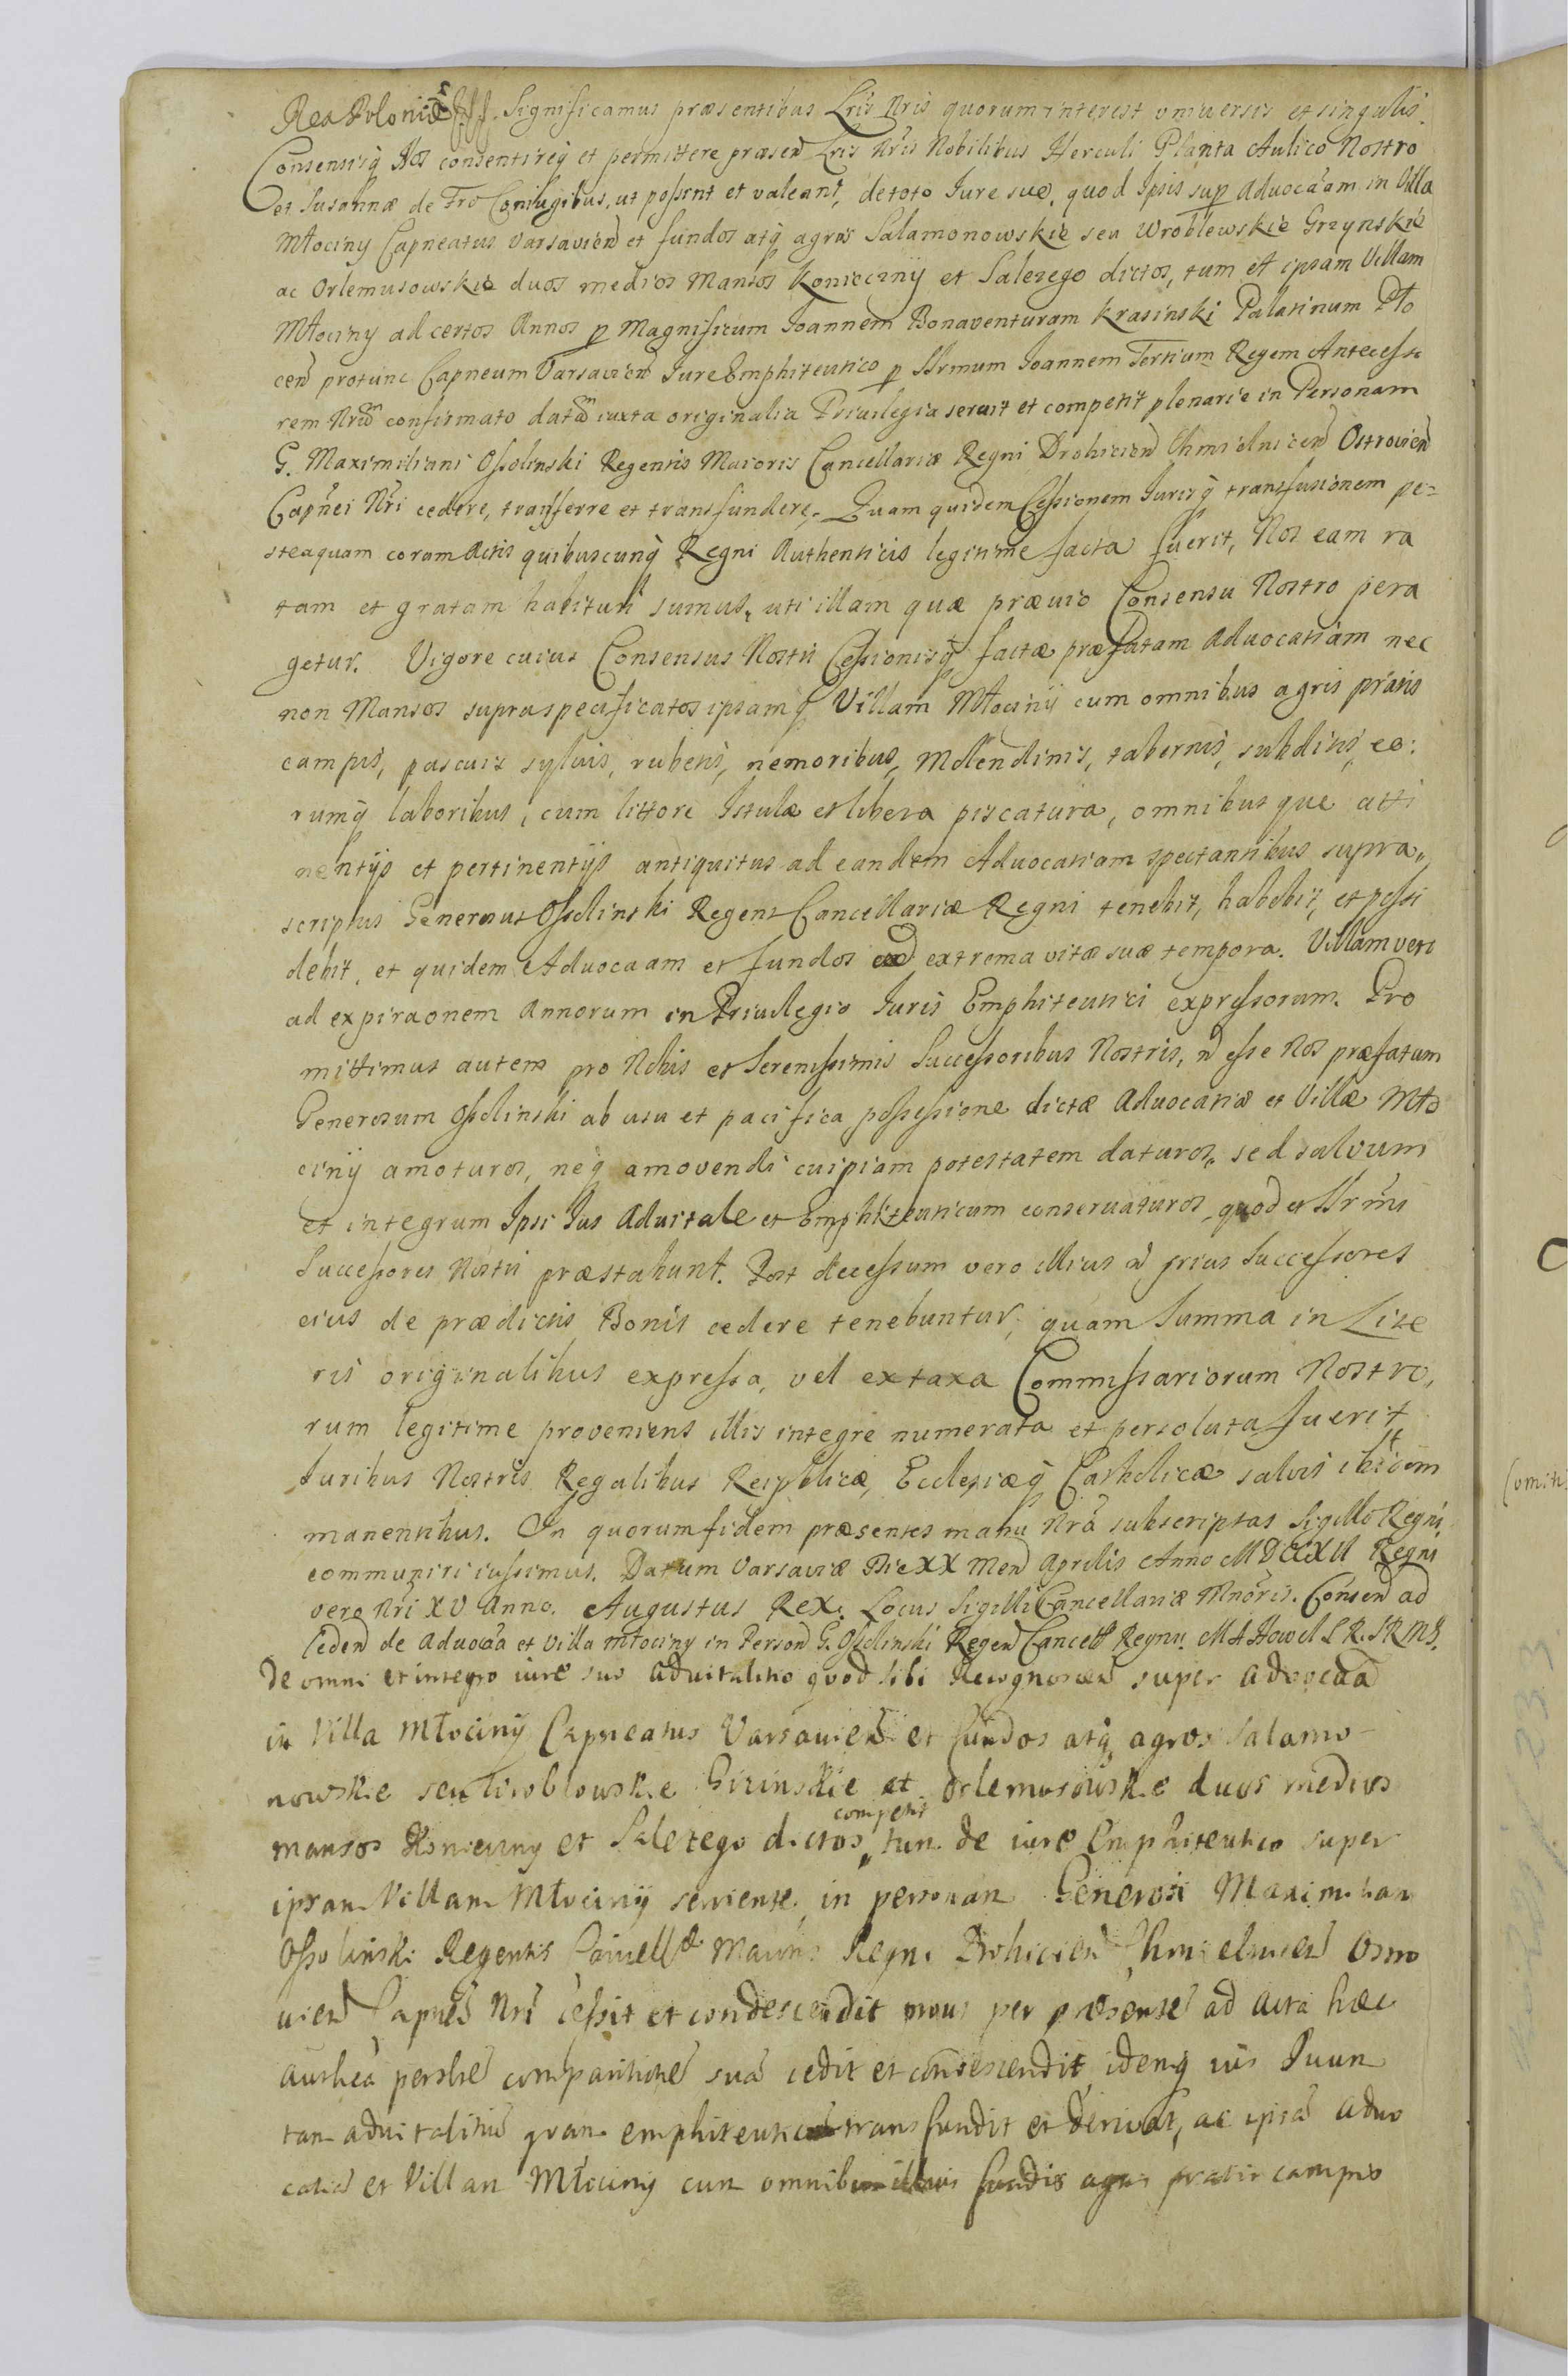 Rex Poloniæ Significamus præsentibus Lris Nris quorum interest universis et singulis.
Consensisq Nos consentireq et permittere præsen Lris Nris Nobilibus Herculi Planta Aulico Nostro
et Susannæ de Fro Coniugibus, ut possint et valeant, de toto Iure suo, quod Ipsis sup Aduocaam in Villa
Młociny Capneatus Varsavien et fundos atq agros Salamonowskie seu Wroblewskie Grzynskie
ac Orlemusowskie duos medios Mansos Konieczny et Salezego dictos, tum et ipsam Villam
Młociny ad certos Annos p Magnificum Ioannem Bonaventuram Krasinski Palatinum Plo
cen protunc Capneum Varsavien Iure Emphiteutico p SSrmum Ioannem Tertium Regem Antecesso
rem Nrum confirmato datam iuxta originalia Priuilegia seruit et competit plenarie in Personam
G. Maximiliani Ossolinski Regentis Maioris Cancellariæ Regni Drohicien Chmielnicen Ostrovien
Capnei Nri cedere, transferre et transfundere. Quam quidem Cessionem Iurisq transfusionem po=
steaquam coram Actis quibuscunq Regni Authenticis legitime facta fuerit, Nos eam ra
tam et gratam habituri sumus, uti illam quæ prævio Consensu Nostro pera
getur. Vigore cuius Consensus Nostri Cessionisq factæ præfatam Aduocatiam nec
non Mansos supraspecificatos ipsamq Villam Młociny cum omnibus agris pratis
campis, pascuis sylvis, rubetis, nemoribus, Molendinis, tabernis, subditis, eo:
rumq laboribus, cum littore Istulæ et libera piscatura, omnibusque atti
nentijs et pertinentijs antiquitus ad eandem Aduocatiam spectantibus supra
scriptus Generosus Ossolinski Regens Cancellariæ Regni tenebit, habebit, et possi
debit, et quidem Aduocaam et fundos ad extrema vitæ suæ tempora. Villam vero
ad expiraonem Annorum in Priuilegio Iuris Emphiteutici expressorum. Pro
mittimus autem pro Nobis et Serenissimis Successoribus Nostris, n esse Nos præfatum
Generosum Ossolinski ab usu et pacifica possessione dictæ Aduocatiæ et Villæ Mło
ciny amoturos, neq amovendi cuipiam potestatem daturos, sed salvum
et integrum Ipsi Ius Aduitale et Emphiteuticum conservaturos, quod et SSrmi
Successores Nostri præstabunt. Post decessum vero illius n prius Successores
eius de prædictis Bonis cedere tenebuntur, quam Summa in Lite
ris originalibus expressa, vel ex taxa Commissariorum Nostro,
rum legitime proveniens illis integre numerata et persoluta fuerit
Iuribus Nostris Regalibus Reipublicæ, Ecclesiæq Catholicæ salvis ibidem
manentibus. In quorum fidem præsentes manu Nra subscriptas Sigillo Regni
communiri iussimus. Datum Varsaviæ Die XX Men Aprilis Anno MDCCXII Regni
vero Nri XV Anno. Augustus Rex. Locus Sigilli Cancellariæ Minoris. Consen ad
Ceden de Aduocaa et Villa Młociny in Person G. Ossolinski Regen Cancell Regni.
De omni et integro iure suo aduitalitio quod sibi Recognoscen super Advocaa
in Villa Młociny Capneatus Varsavien et fundos atq agros Salamo-
nowskie seu Wroblowskie Grzinskie et Orlemusowskie duos medios
mansos Konieczny et Salezego dictos competit, tum de iure Emphiteutico super
ipsam Villam Młociny seruiente, in personam Generosi Maximilian
Ossolinski Regentis Cancell Maioris Regni Drohicien Chmielnicen Ostro
uien Capnei Nri cessit et condescendit prout per præsente ad acta hæc
authca persle comparitione sua cedit et condescendit idemq ius Suum
tam aduitalitiu quam emphiteuticu transfundit et derivat, ac ipsa aduo
catia et Villam Młociny cum omnibus illius fundis agris pratis campis